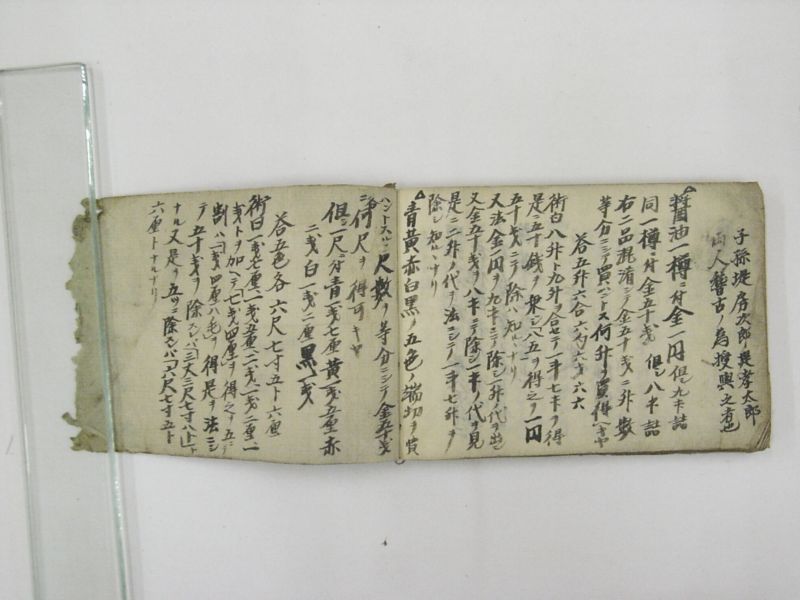 子孫堤房次郎堤孝太郎
両人稽古ノ為授與之者也
醤油一樽ニ付金一円但シ九升詰
同一樽ニ付金五十戋但シ八升詰
右二品混淆ニテ金五十戋ニ升数
等分ニシテ買ハントス何升ヲ買得ヘキヤ
答五升六合六勺六才六六
術曰八升ト九升ヲ合セテ一斗七升ヲ得
是ニ五十銭ヲ乗シ八五ヲ得之ヲ一円
五十戋ニテ除ハ知ルナリ
又法金一円ヲ九升ニテ除シ一升ノ代ヲ出シ
又金五十戋ヲ八升ニテ除シ一升ノ代ヲ見
是ニ二升ノ代ヲ法ニシテ一斗七升ヲ
除シ知ルナリ
青黄赤白黒ノ五色ノ端切ヲ買
ハントスルニ尺数ヲ等分ニシテ金五十戋
ニ何尺ヲ得可キヤ
但シ一尺ニ付青一戋七厘黄一戋五厘赤
二戋白一戋二厘黒一戋
答五色各六尺七寸五卜六厘
術曰一戋七厘一戋五厘二戋一戋二厘一
戋トヲ加ヘテ七戋四厘ヲ得之ヲ五ニテ
割ハ一戋四厘八毛ヲ得是ヲ法ニシ
テ五十戋ヲ除スレバ三丈三尺七寸八卜ト
ナル又是ヲ五ツニ除スレバ六尺七寸五卜
六厘トナルナリ